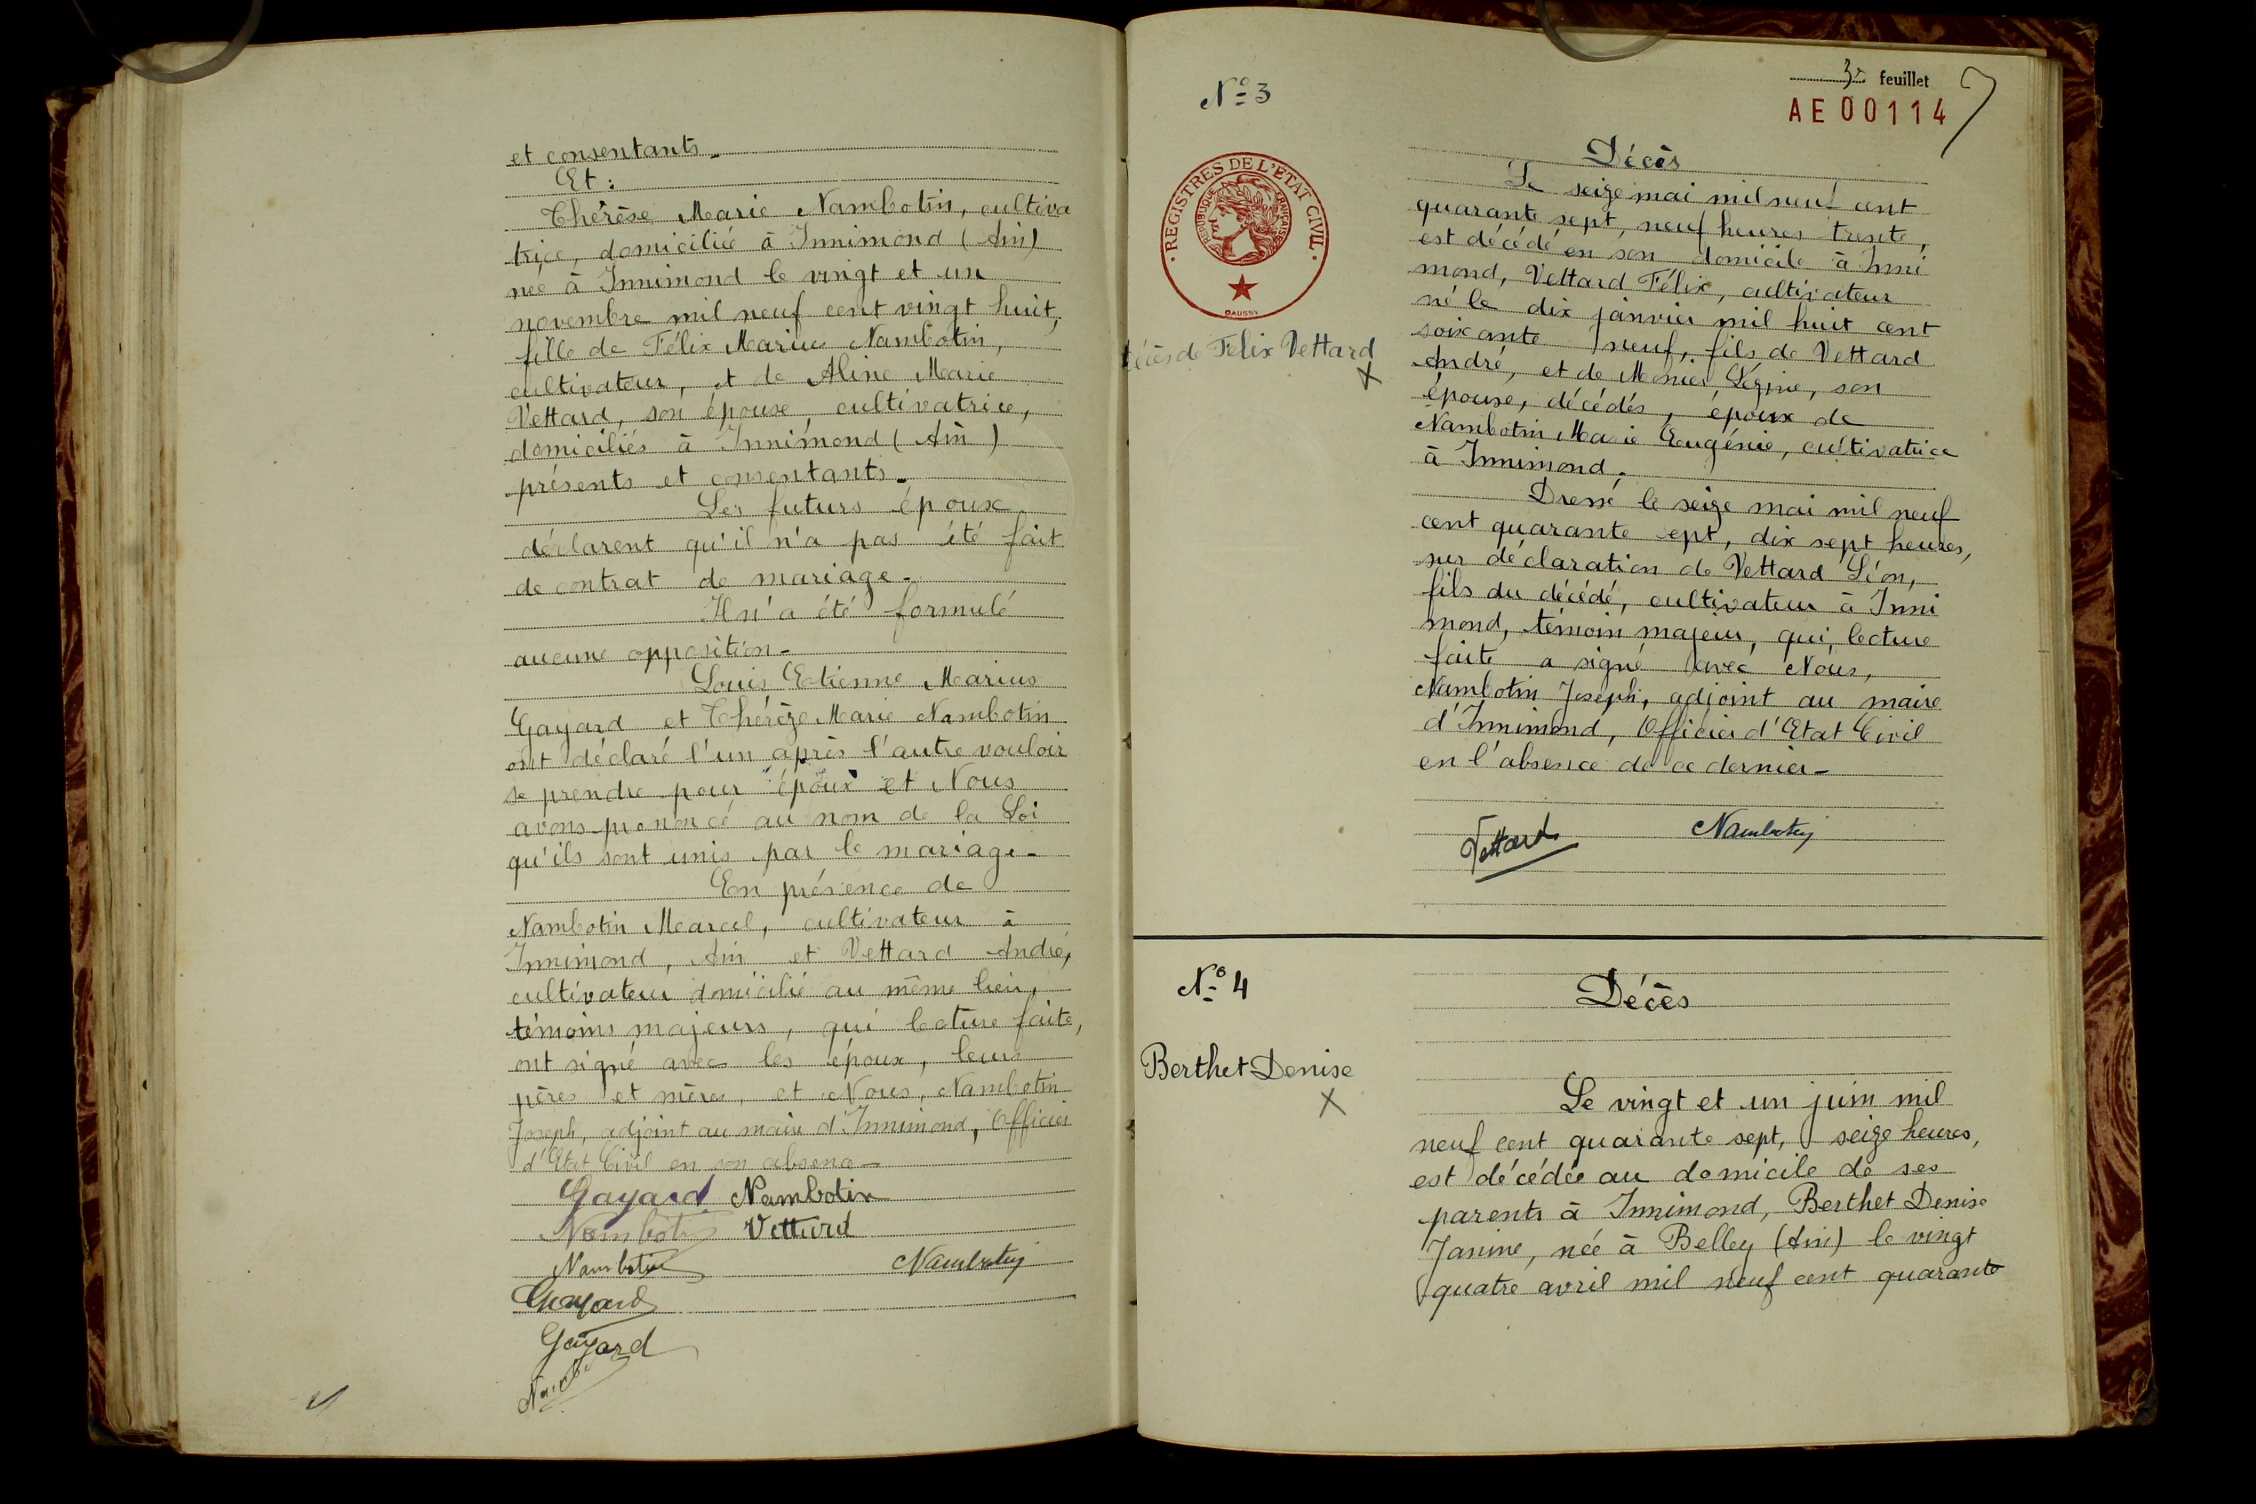 et consentants.
Et :
Thérèse Marie Nambotin, cultiva
trice, domiciliée à Innimond (Ain)
née à Innimond le vingt et un
novembre mil neuf cent vingt huit,
fille de Félix Marius Nambotin,
cultivateur, et de Aline Marie
Vettard, son épouse, cultivatrice,
domiciliés à Innimond (Ain)
présents et consentants.
Les futurs époux
déclarent qu'il n'a pas été fait
de contrat de mariage.
Il n'a été formulé
aucune opposition.
Louis Etienne Marius
Gayard et Thérèze Marie Nambotin
ont déclaré l'un après l'autre vouloir
se prendre pour époux et Nous
avons prononcé au nom de la Loi
qu'ils sont unis par le mariage.
En présence de
Nambotin Marcel, cultivateur à
Innimond, Ain et Vettard André,
cultivateur domicilié au même lieu,
témoins majeurs, qui lecture faite,
ont signé avec les époux, leurs
pères et mères, et Nous, Nambotin
Joseph, adjoint au maire d'Innimond, Officier
d'Etat Civil en son absence
Gayard Nambotin
Nambotin Vettard
Nambotin Nambotin
Gayard
Gayard
3e feuillet
AE 00114
7
N° 3
REGISTRES DE L'ETAT CIVIL
REPUBLIQUE FRANÇAISE
DAUSSY
décès de Felix Vettard
X
Décès
Le seize mai mil neuf cent
quarante sept, neuf heures trente,
est décédé en son domicile à Inni
mond, Vettard Félix, cultivateur
né le dix janvier mil huit cent
soixante neuf, fils de Vettard
André, et de Monier, son
épouse, décédés, époux de
Nambotin Marie Eugénie, cultivatrice
à Innimond.
Dressé le seize mai mil neuf
cent quarante sept, dix sept heures,
sur déclaration de Vettard Léon,
fils du décédé, cultivateur à Inni
mond, témoin majeur, qui, lecture
faite a signé avec Nous,
Nambotin Joseph, adjoint au maire
d'Innimond, Officier d'Etat Civil
en l'absence de ce dernier
Vettard Nambotin
N° 4
Berthet Denise
X
Décès
Le vingt et un juin mil
neuf cent quarante sept, seize heures,
est décédée au domicile de ses
parents à Innimond, Berthet Denise
Janine, née à Belley (Ain) le vingt
quatre avril mil neuf cent quarante